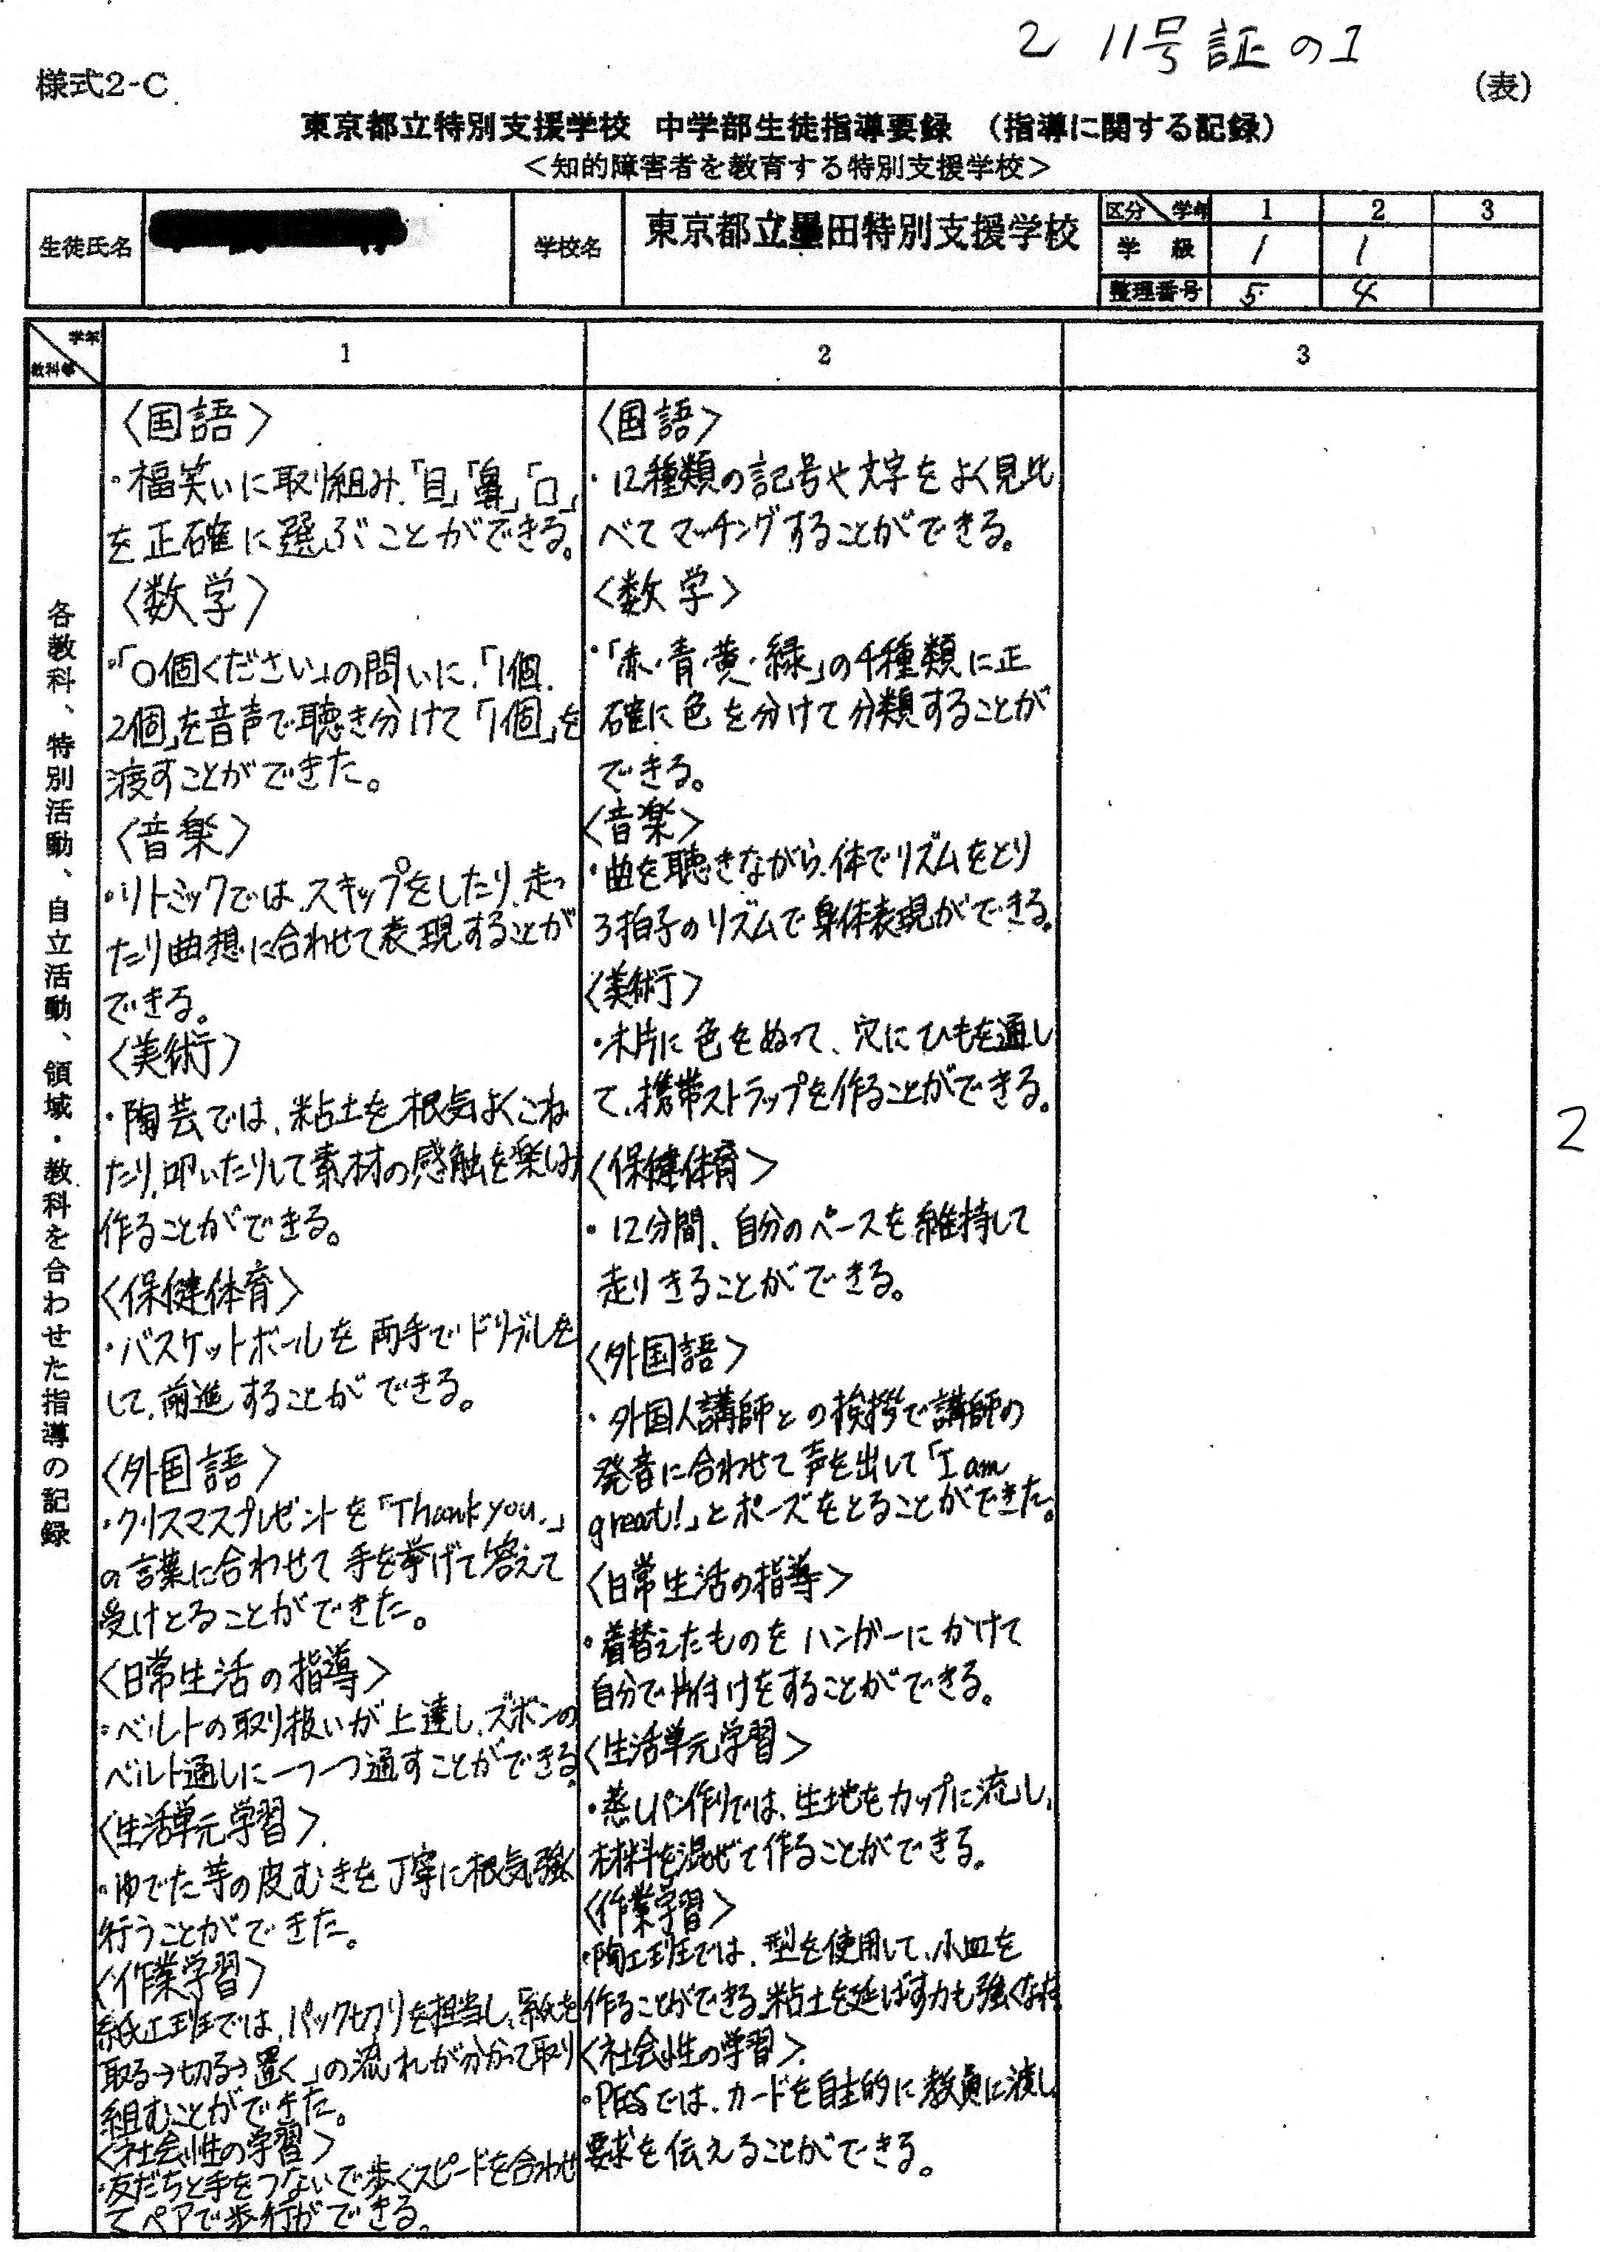 2 11号証の1
様式2-C
(表)
東京都立特別支援学校 中学部生徒指導要録 (指導に関する記録)
<知的障害者を教育する特別支援学校>
生徒氏名
学校名
東京都立墨田特別支援学校
区分 学年 1 2 3
学級 1 1
整理番号 5 4
学年
教科等
1
2
3
各教科、特別活動、自立活動、領域・教科を合わせた指導の記録
〈国語〉
・福笑いに取り組み、「目」「鼻」「口」
を正確に選ぶことができる。
〈数学〉
・「〇個ください」の問いに、「1個、
2個」を音声で聴き分けて「1個」を
渡すことができた。
〈音楽〉
・リトミックでは、スキップをしたり、走っ
たり曲想に合わせて表現することが
できる。
〈美術〉
・陶芸では、粘土を根気よくこね
たり、叩いたりして素材の感触を楽しみ
作ることができる。
〈保健体育〉
・バスケットボールを両手でドリブルを
して、前進することができる。
〈外国語〉
・クリスマスプレゼントを「Thank you.」
の言葉に合わせて手を挙げて答えて
受けとることができた。
〈日常生活の指導〉
・ベルトの取り扱いが上達し、ズボンの
ベルト通しに一つ一つ通すことができる。
〈生活単元学習〉
・ゆでた芋の皮むきを丁寧に根気強く
行うことができた。
〈作業学習〉
紙工班では、パック切りを担当し、「紙を
取る→切る→置く」の流れが分かって取り
組むことができた。
〈社会性の学習〉
・友だちと手をつないで歩くスピードを合わせ
てペアで歩行ができる。
〈国語〉
・12種類の記号や文字をよく見比
べてマッチングすることができる。
〈数学〉
・「赤・青・黄・緑」の4種類に正
確に色を分けて分類することが
できる。
〈音楽〉
・曲を聴きながら、体でリズムをとり
3拍子のリズムで身体表現ができる。
〈美術〉
・木片に色をぬって、穴にひもを通し
て、携帯ストラップを作ることができる。
〈保健体育〉
・12分間、自分のペースを維持して
走りきることができる。
〈外国語〉
・外国人講師との挨拶で講師の
発音に合わせて声を出して「I am
great!」とポーズをとることができた。
〈日常生活の指導〉
・着替えたものをハンガーにかけて
自分で片付けをすることができる。
〈生活単元学習〉
・蒸しパン作りでは、生地をカップに流し、
材料を混ぜて作ることができる。
〈作業学習〉
・陶工班では、型を使用して、小皿を
作ることができる。粘土を延ばす力も強くなった
〈社会性の学習〉
・PECSでは、カードを自主的に教員に渡し
要求を伝えることができる。
2